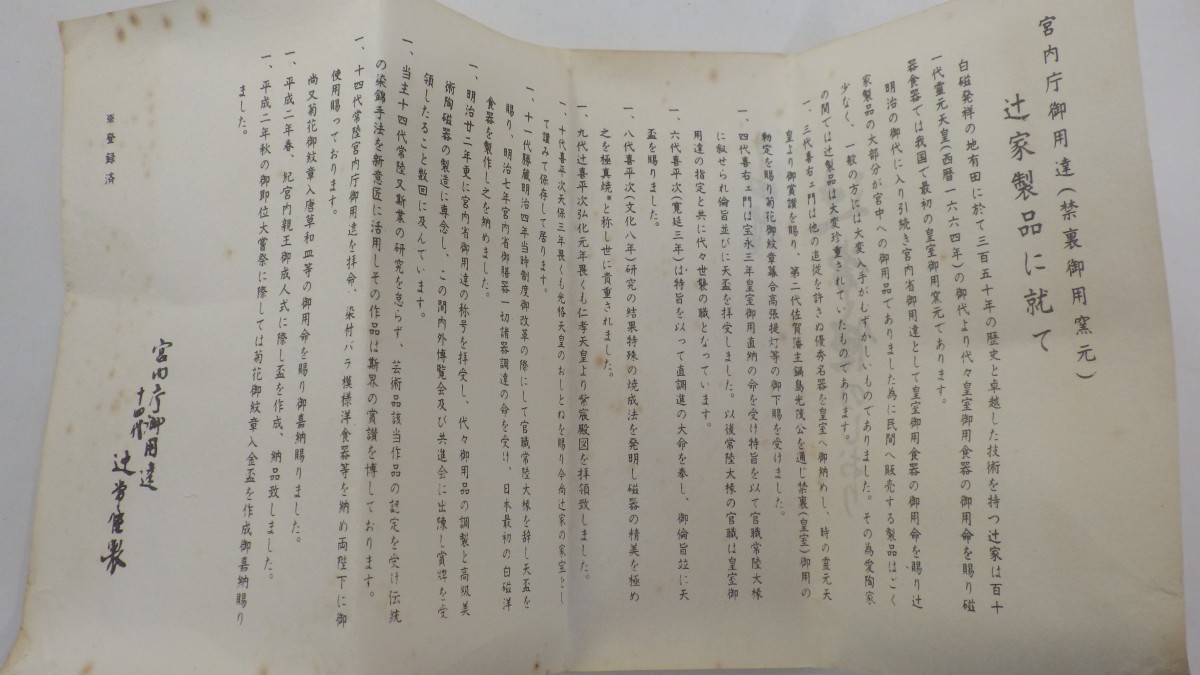 宮内庁御用達(禁裏御用窯元)
辻家製品に就て
白磁発祥の地有田に於て三百五十年の歴史と卓越した技術を持つ辻家は百十
一代霊元天皇(西暦一六六四年)の御代より代々皇室御用食器の御用命を賜り磁
器食器では我国で最初の皇室御用窯元であります。
明治の御代に入り引続き宮内省御用達として皇室御用食器の御用命を賜り辻
家製品の大部分が宮中への御用品でありました為に民間へ販売する製品はごく
少なく、一般の方には大変入手がむずかしいものでありました。その為愛陶家
の間では辻製品は大変珍重されていたものであります。
一、三代喜右ェ門は他の追従を許さぬ優秀名器を皇室へ御納めし、時の霊元天
皇より御賞讃を賜り、第二代佐賀藩主鍋島光茂公を通じ禁裏(皇室)御用の
勅定を賜り菊花御紋章幕合高張提灯等の御下賜を受けました。
一、四代喜右ェ門は宝永三年皇室御用直納の命を受け特旨を以て官職常陸大椽
に叙せられ倫旨並びに天盃を拝受しました。以後常陸大椽の官職は皇室御
用達の指定と共に代々世襲の職となっています。
一、六代喜平次(寛延三年)は特旨を以って直調進の大命を奉し、御倫旨竝に天
盃を賜りました。
一、八代喜平次(文化八年)研究の結果特殊の焼成法を発明し磁器の精美を極め
之を極真焼と称し世に貴重されました。
一、九代辻喜平次弘化元年畏くも仁孝天皇より紫宸殿図を拝領致しました。
一、十代喜平次天保三年畏くも光格天皇のおしとねを賜り今尚辻家の家宝とし
て謹みて保存して居ります。
一、十一代勝蔵明治四年当時制度御改革の際にして官職常陸大椽を辞し天盃を
賜り、明治七年宮内省御膳器一切諸器調達の命を受け、日本最初の白磁洋
食器を製作し之を納めました。
一、明治廿二年更に宮内省御用達の称号を拝受し、代々御用品の調製と高級美
術陶磁器の製造に専念し、この間内外博覧会及び共進会に出陳し賞牌を受
領したること数回に及んでいます。
一、当主十四代常陸又斯業の研究を怠らず、芸術品該当作品の認定を受け伝統
の染錦手法を新意匠に活用しその作品は斯界の賞讃を博しております。
一、十四代常陸宮内庁御用達を拝命、染付バラ模様洋食器等を納め両陛下に御
使用賜っております。
尚又菊花御紋章入唐草和皿等の御用命を賜り御嘉納賜りました。
一、平成二年春、紀宮内親王御成人式に際し盃を作成、納品致しました。
一、平成二年秋の御即位大嘗祭に際しては菊花御紋章入金盃を作成御嘉納賜り
ました。
宮内庁御用達
十四代 辻常陸製
※登録済